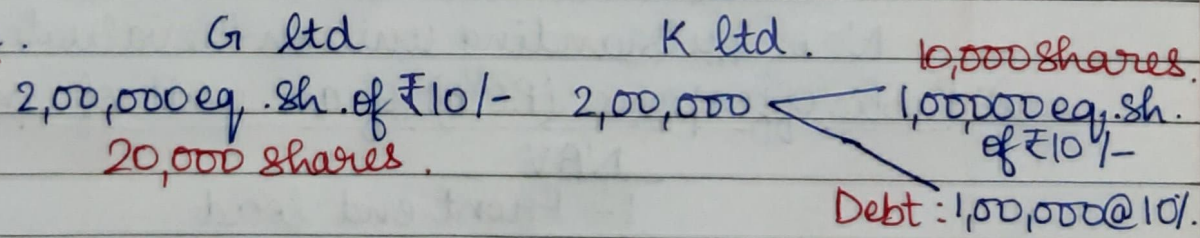 G ltd K ltd.
10,000 shares.
2,00,000 eq. sh. of ₹10/- 2,00,000 1,00,000 eq. sh.
of ₹10/-
20,000 shares.
Debt : 1,00,000 @ 10%.